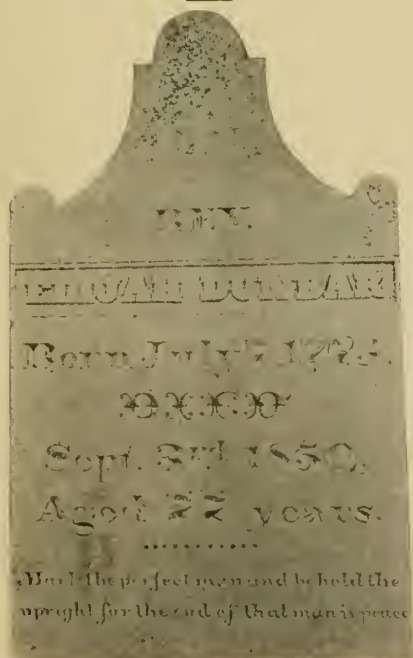 REV.
ELIJAH DUNBAR
Born July
DIED
Sept. 3rd 1850,
Aged 77 years.
Mark the perfect man and behold the
upright for the end of that man is peace